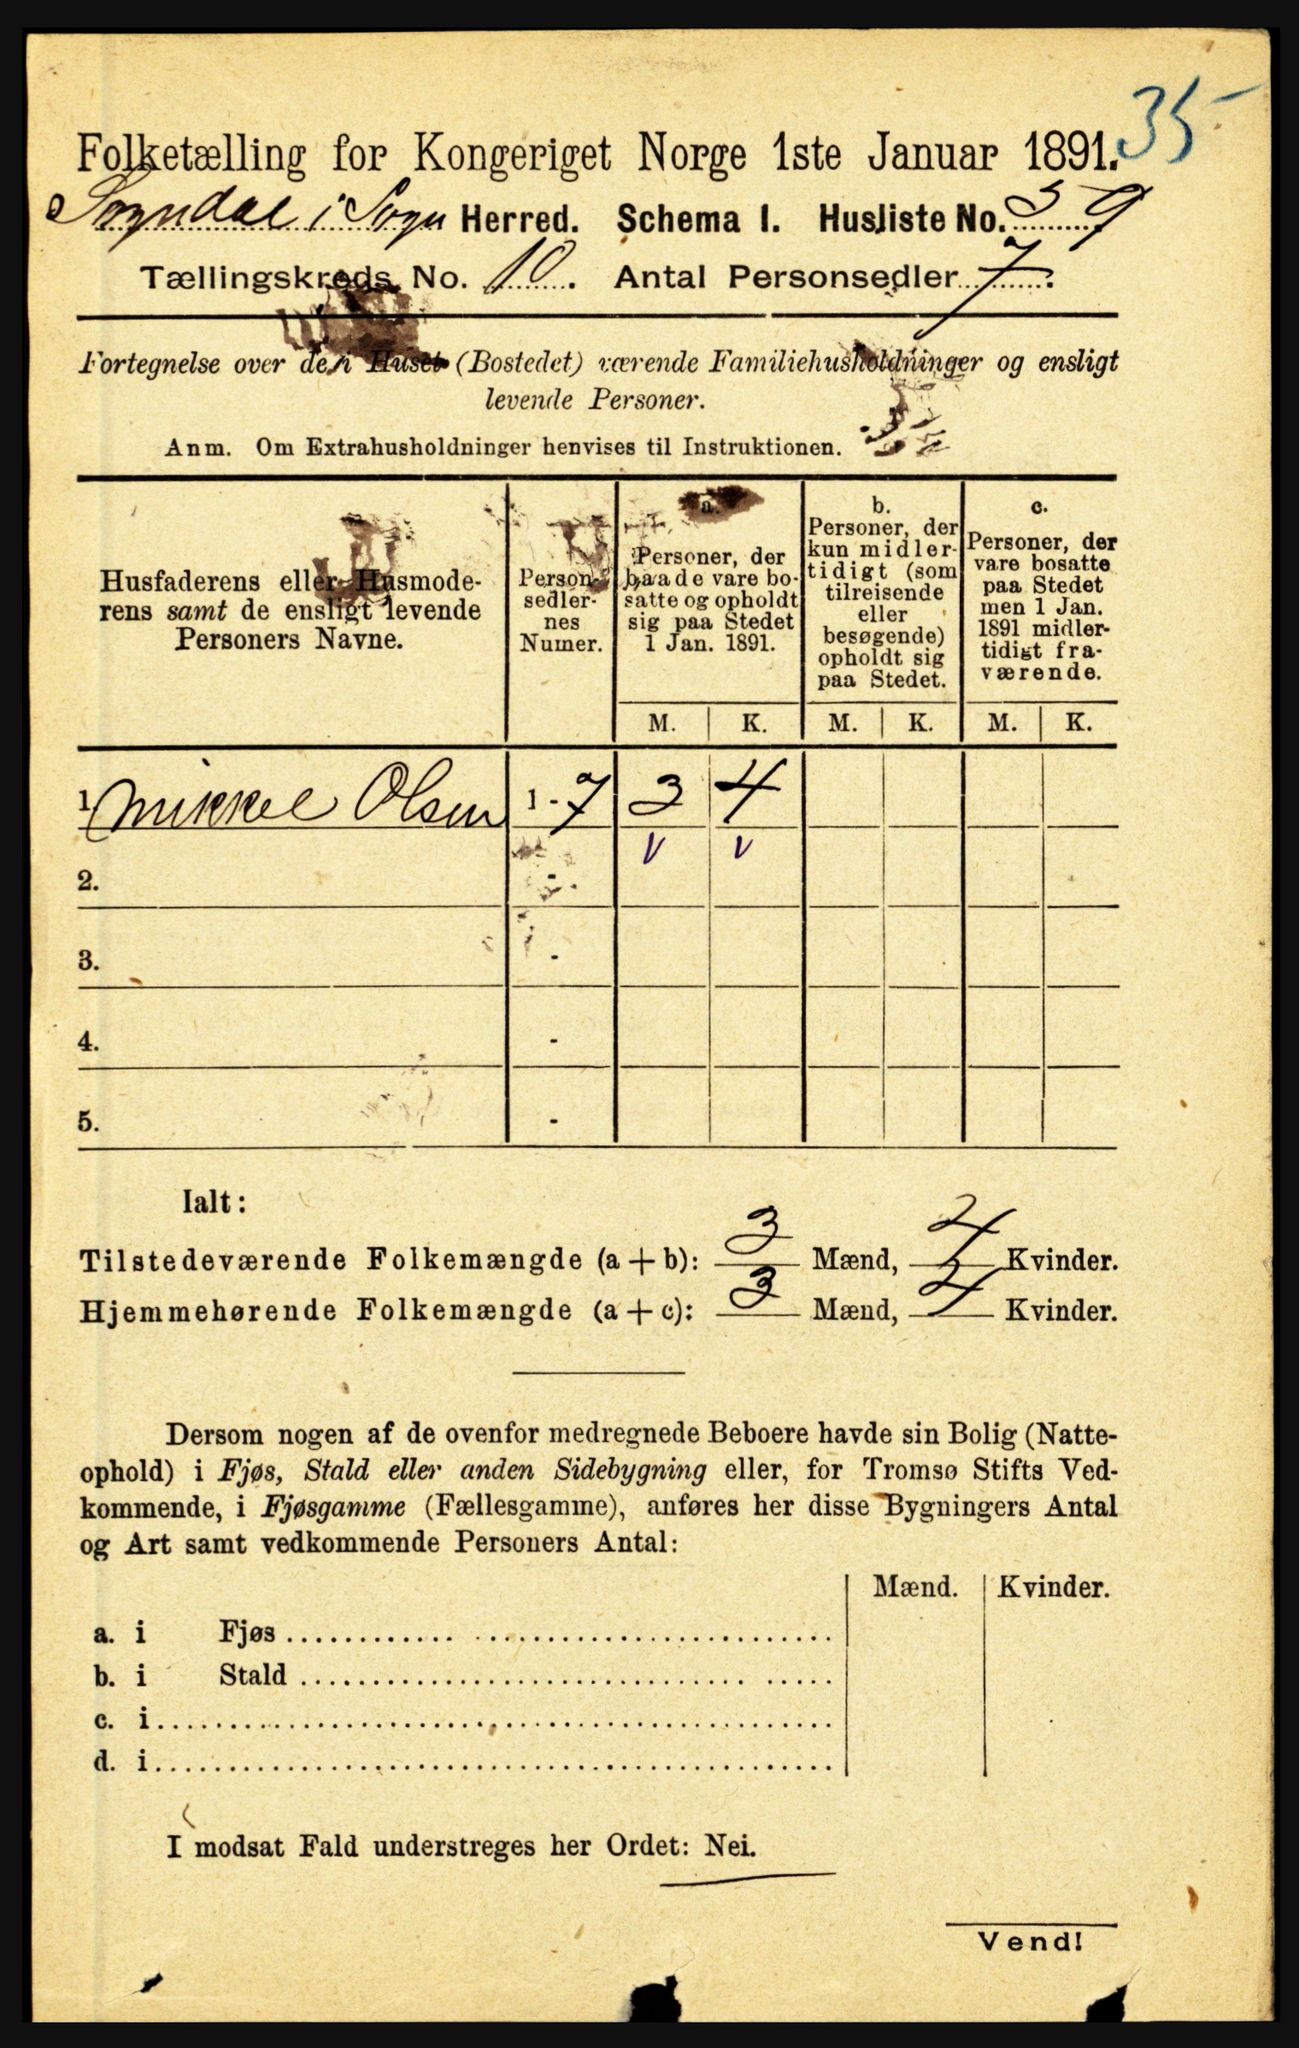 35
Folketælling for Kongeriget Norge 1ste Januar 1891.
Sogndal i Sogn Herred. Schema I. Husliste No. 39
Tællingskreds No. 10. Antal Personsedler 7.
Fortegnelse over de i Huset (Bostedet) værende Familiehusholdninger og ensligt
levende Personer.
Anm. Om Extrahusholdninger henvises til Instruktionen.
Husfaderens eller Husmode-
rens samt de ensligt levende
Personers Navne.
Person-
sedler-
nes
Numer.
a.
Personer, der
baade vare bo-
satte og opholdt
sig paa Stedet
1 Jan. 1891.
b.
Personer, der
kun midler-
tidigt (som
tilreisende
eller
besøgende)
opholdt sig
paa Stedet.
c.
Personer, der
vare bosatte
paa Stedet
men 1 Jan.
1891 midler-
tidigt fra-
værende.
M. K. M. K. M. K.
1. Mikkel Olsen 1 - 7 3 4
v v
2. -
3. -
4. -
5. -
Ialt:
Tilstedeværende Folkemængde (a + b): 3 Mænd, 4 Kvinder.
Hjemmehørende Folkemængde (a + c): 3 Mænd, 4 Kvinder.
Dersom nogen af de ovenfor medregnede Beboere havde sin Bolig (Natte-
ophold) i Fjøs, Stald eller anden Sidebygning eller, for Tromsø Stifts Ved-
kommende, i Fjøsgamme (Fællesgamme), anføres her disse Bygningers Antal
og Art samt vedkommende Personers Antal:
Mænd. Kvinder.
a. i Fjøs
b. i Stald
c. i
d. i
I modsat Fald understreges her Ordet: Nei.
Vend!